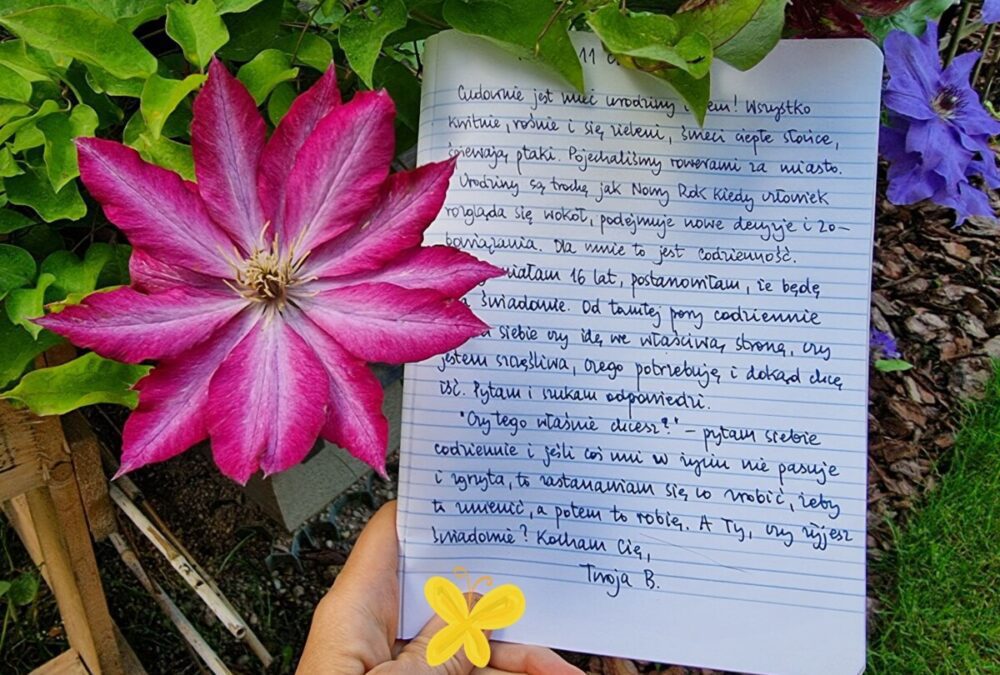 11
Cudownie jest mieć urodziny ! Wszystko
kwitnie, rośnie i się zieleni, świeci ciepłe słońce,
śpiewają ptaki. Pojechaliśmy rowerami za miasto.
Urodziny są trochę jak Nowy Rok kiedy człowiek
rozgląda się wokół, podejmuje nowe decyzje i zo-
bowiązania. Dla mnie to jest codzienność.
miałam 16 lat, postanowiłam, że będę
świadomie. Od tamtej pory codziennie
siebie czy idę we właściwą stronę, czy
jestem szczęśliwa, czego potrzebuję i dokąd chcę
iść. Pytam i szukam odpowiedzi.
"Czy tego właśnie chcesz?" – pytam siebie
codziennie i jeśli coś mi w życiu nie pasuje
i zgrzyta, to zastanawiam się, co zrobić, żeby
to zmienić, a potem to robię. A Ty, czy żyjesz
świadomie? Kocham Cię,
Twoja B.